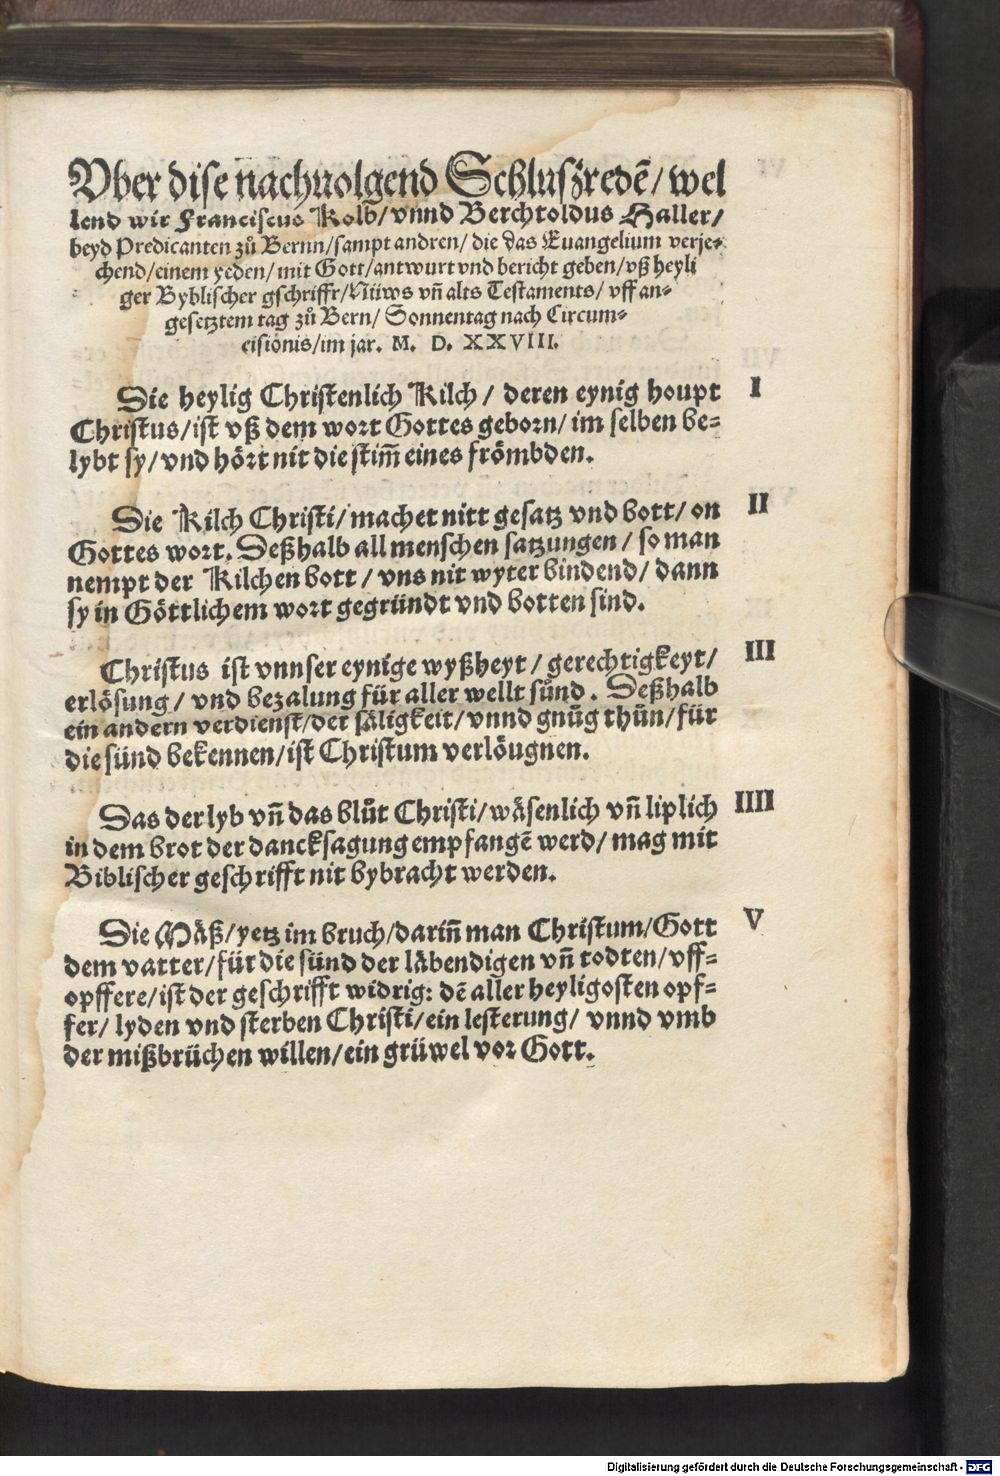 Vber dise nachuolgend Schluszredē/ wel
lend wir Franciscus Kolb/ vnnd Berchtoldus Haller/
beyd Predicanten zů Bernn/ sampt andren/ die das Euangelium verje-
chend/ einem yeden/ mit Gott/ antwurt vnd bericht geben/ vß heyli
ger Byblischer gschrifft/ Nüws vñ alts Testaments/ vff an-
gesetztem tag zů Bern/ Sonnentag nach Circum-
cisionis/ im jar. M. D. XXVIII.
Die heylig Christenlich Kilch/ deren eynig houpt I
Christus/ ist vß dem wort Gottes geborn/ im selben be-
lybt sy/ vnd hört nit die stim̄ eines frömbden.
Die Kilch Christi/ machet nitt gesatz vnd bott/ on II
Gottes wort. Deßhalb all menschen satzungen/ so man
nempt der Kilchen bott/ vns nit wyter bindend/ dann
sy in Göttlichem wort gegründt vnd botten sind.
Christus ist vnnser eynige wyßheyt/ gerechtigkeyt/ III
erlösung/ vnd bezalung für aller wellt sünd. Deßhalb
ein andern verdienst/ der säligkeit/ vnnd gnůg thůn/ für
die sünd bekennen/ ist Christum verlöugnen.
Das der lyb vñ das blůt Christi/ wäsenlich vñ liplich IIII
in dem brot der dancksagung empfangē werd/ mag mit
Biblischer geschrifft nit bybracht werden.
Die Mäß/ yetz im bruch/ dariñ man Christum/ Gott V
dem vatter/ für die sünd der läbendigen vñ todten/ vff-
opffere/ ist der geschrifft widrig: dē aller heyligosten opf-
fer/ lyden vnd sterben Christi/ ein lesterung/ vnnd vmb
der mißbrüchen willen/ ein grüwel vor Gott.
Digitalisierung gefördert durch die Deutsche Forschungsgemeinschaft - DFG